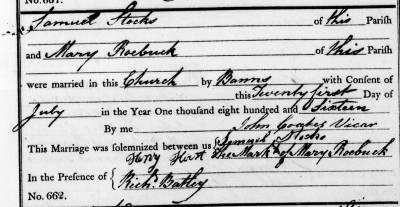 No. 661.
Samuel Stocks of this Parish
and Mary Roebuck of this Parish
were married in this Church by Banns with Consent of
this Twenty first Day of
July in the Year One thousand eight hundred and Sixteen
By me John Coates Vicar
This Marriage was solemnized between us { Samuel Stocks
The Mark of Mary Roebuck
In the Presence of { Hirst
Richd. Batley
No. 662.